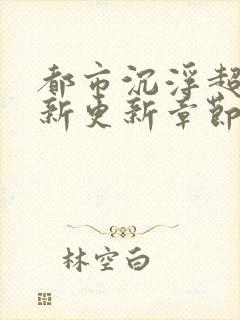 都市沉浮超
新更新章節
林空白